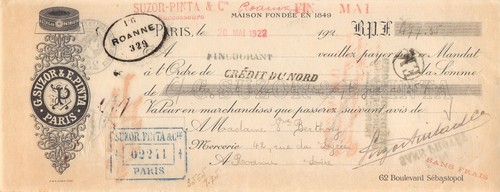 SUZOR-PINTA & Cie Roanne FIN MAI
Successeurs
MAISON FONDÉE EN 1849
PARIS, 20 MAI 1922 192 B.P.F.
1·6
ROANNE
329
A FIN COURANT veuillez payer par Mandat
à l'Ordre de CRÉDIT DU NORD la Somme
de
G. SUZOR & F. PINTA
SP
PARIS
Valeur en marchandises que passerez suivant avis de
A Madame Vve
SUZOR, PINTA & Cie
02211
PARIS
Mercerie 42, rue du Lycée
A Roanne Loire
SANS FRAIS
62 Boulevard Sébastopol